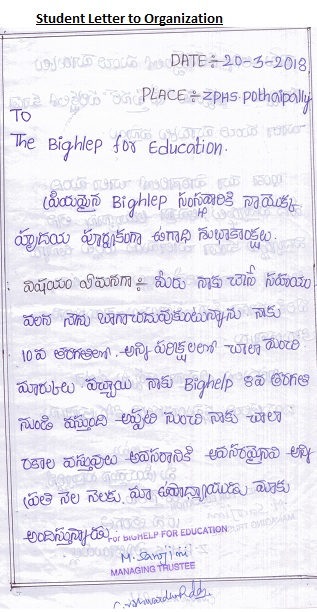 Student Letter to Organization
DATE÷-20-3-2018
PLACE÷ZPHS.pothaipally
TO
The Bighlep for Education.
ప్రియమైన Bighlep సంస్థకి నా యొక్క
హృదయ పూర్వకంగా ఉగాది శుభాకాంక్షలు.
విషయం ఏమనగా÷ మీరు నాకు చేసే సహాయం
వలన నాను బాగాచదువుకుంటున్నాను. నాకు
10వ తరగతిలో. అన్ని పరిక్షలలో చాలా మంచి
మార్కులు వచ్చాయి నాకు Bighelp 8వ తరగతి
నుండి వస్తుంది అప్పటి నుంచి నాకు చాలా
రకాల వస్తువులు అవసరానికి అవసరమైనవి అన్ని
ప్రతి నెల నెలకు. మా ఉపాధ్యాయుడు మాకు
అందిస్తున్నారు.
For BIGHELP FOR EDUCATION
M. Sarojini
MANAGING TRUSTEE